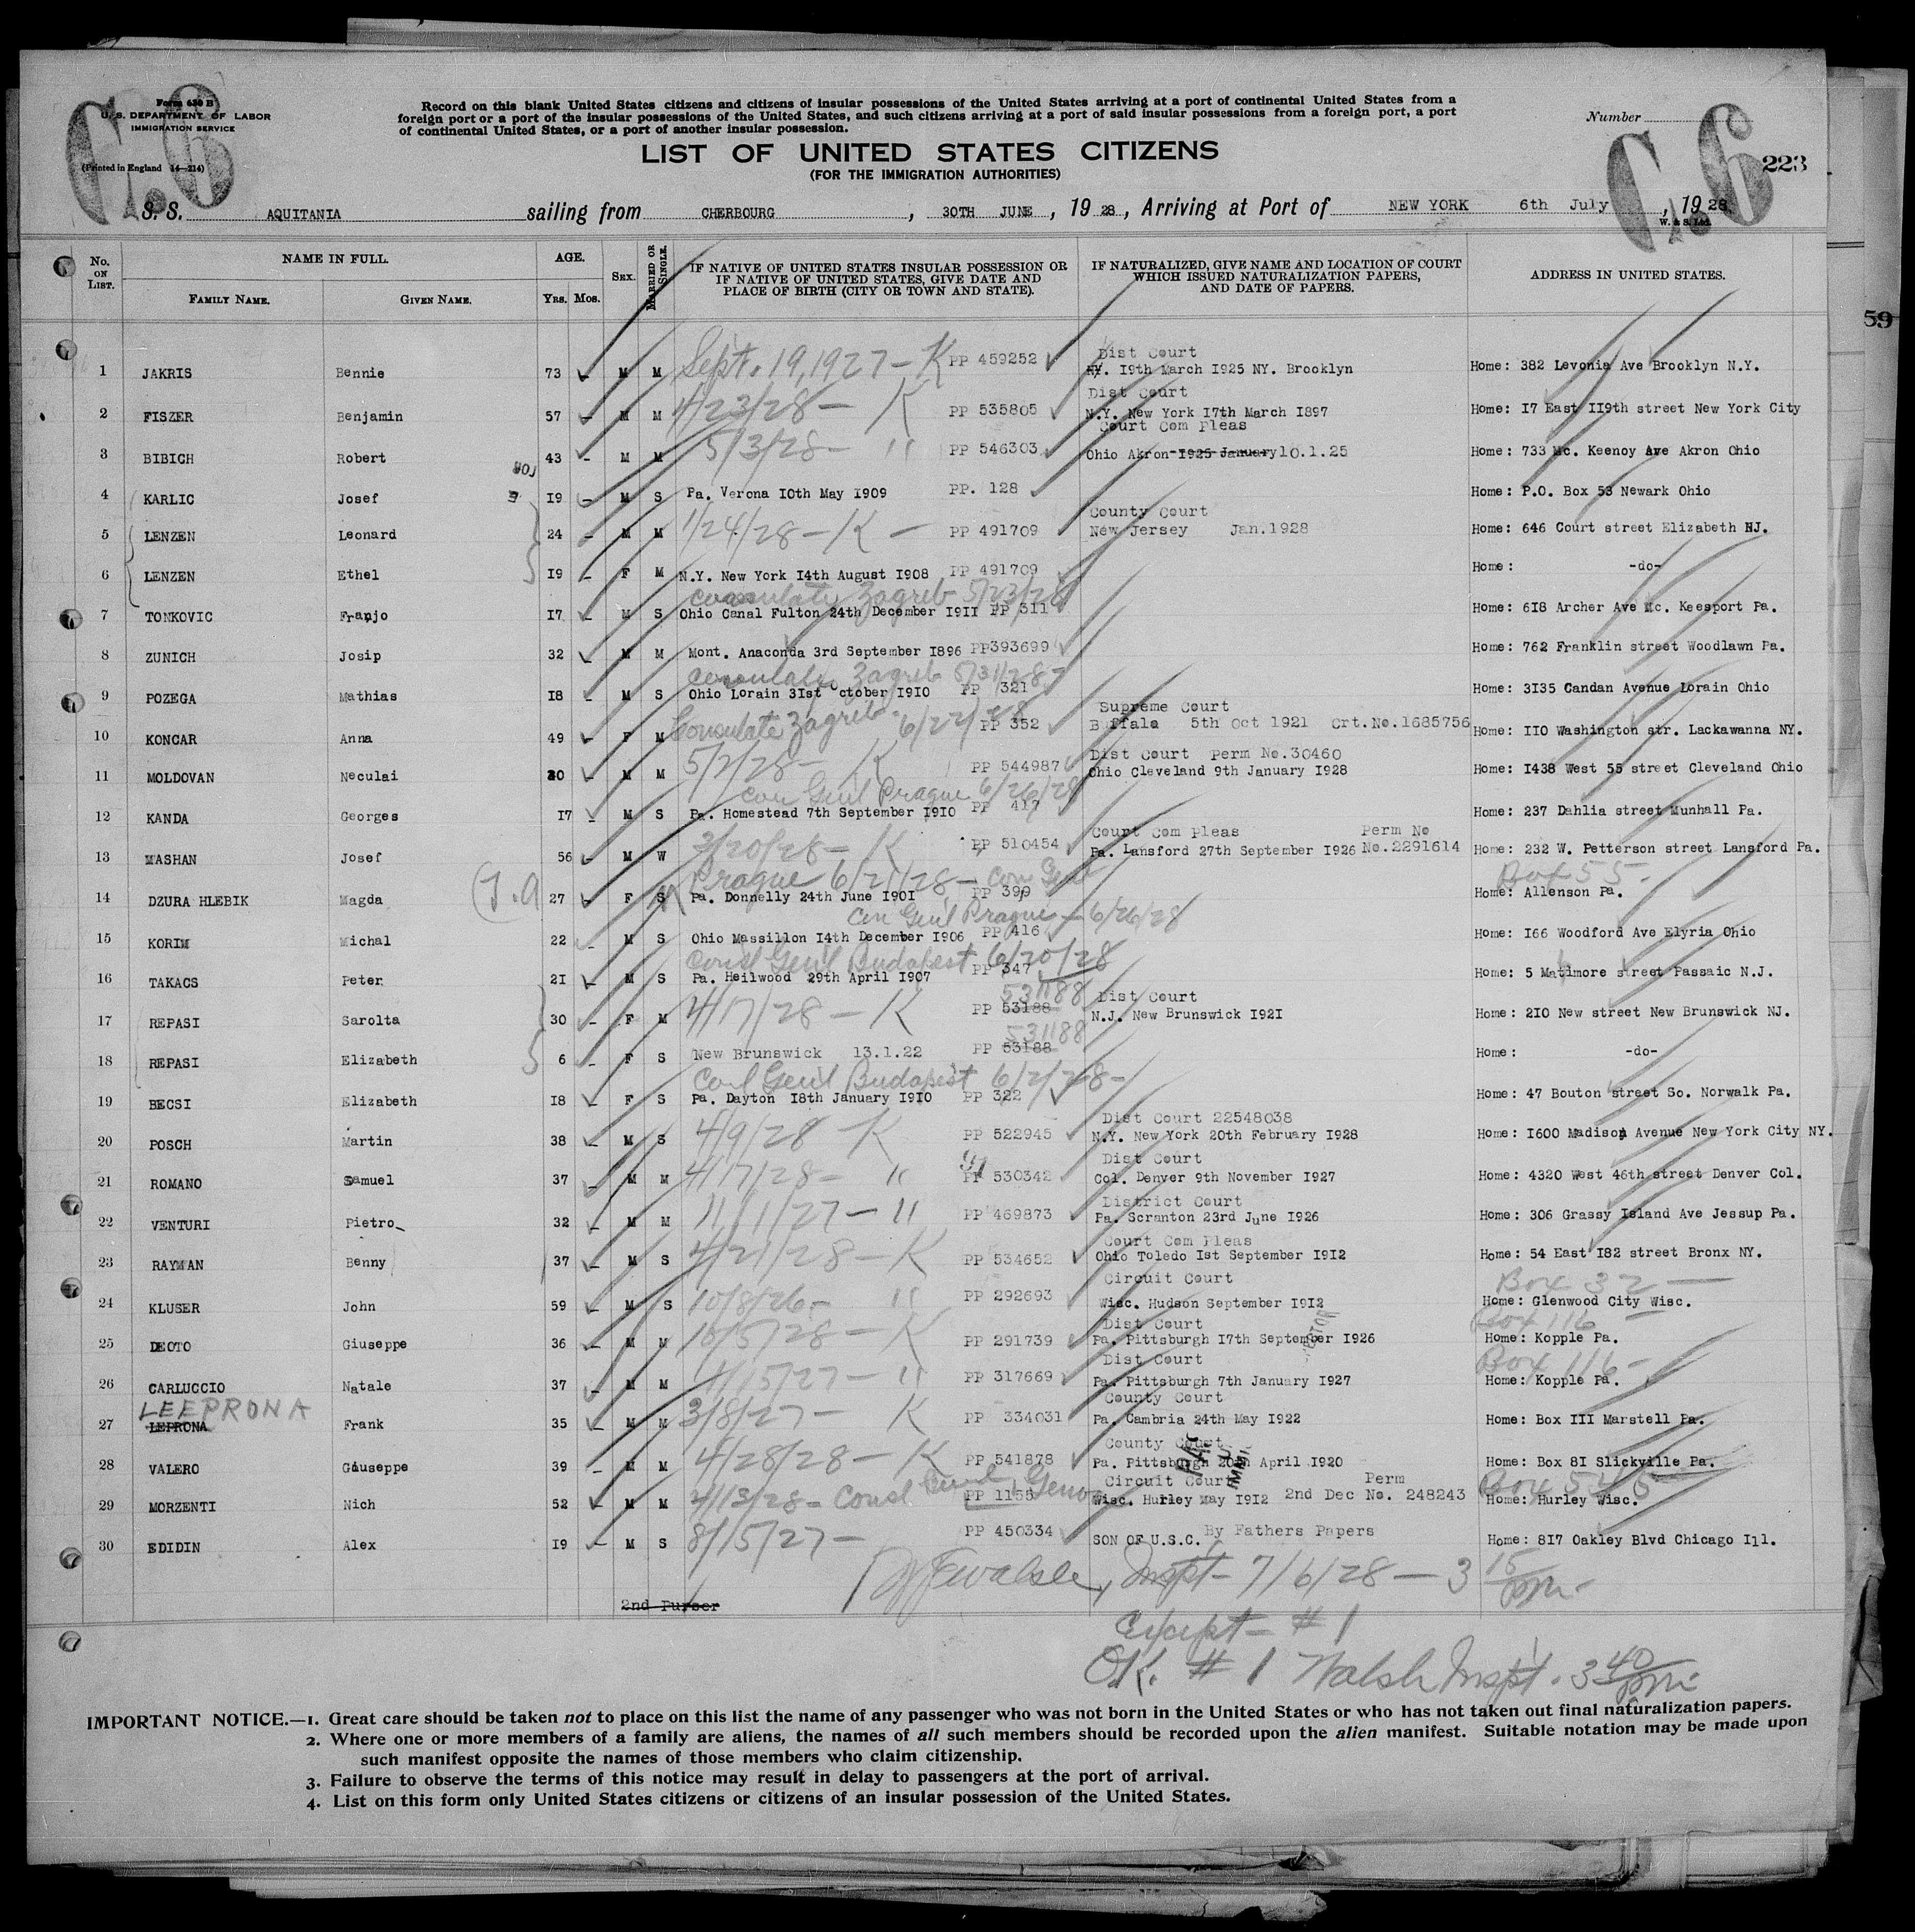 Form 630 B
U. S. DEPARTMENT OF LABOR
IMMIGRATION SERVICE
(Printed in England 14—214)
C.6
Record on this blank United States citizens and citizens of insular possessions of the United States arriving at a port of continental United States from a
foreign port or a port of the insular possessions of the United States, and such citizens arriving at a port of said insular possessions from a foreign port, a port
of continental United States, or a port of another insular possession.
LIST OF UNITED STATES CITIZENS
(FOR THE IMMIGRATION AUTHORITIES)
Number
C.6
223
S. S. AQUITANIA sailing from CHERBOURG, 30TH JUNE, 19 28, Arriving at Port of NEW YORK 6th July, 19 28
W. & S. Ltd.
59
No. ON LIST. NAME IN FULL. FAMILY NAME. GIVEN NAME. AGE. YRS. MOS. SEX. MARRIED OR SINGLE. IF NATIVE OF UNITED STATES INSULAR POSSESSION OR IF NATIVE OF UNITED STATES, GIVE DATE AND PLACE OF BIRTH (CITY OR TOWN AND STATE). IF NATURALIZED, GIVE NAME AND LOCATION OF COURT WHICH ISSUED NATURALIZATION PAPERS, AND DATE OF PAPERS. ADDRESS IN UNITED STATES.
1 JAKRIS Bennie 73 M M Sept. 19, 1927 — K PP 459252 Dist Court NY. I9th March I925 NY. Brooklyn Home: 382 Levonia Ave Brooklyn N.Y.
2 FISZER Benjamin 57 M M 4/23/28 — K PP 535805 Dist Court N.Y. New York I7th March I897 Home: I7 East II9th street New York City
3 BIBICH Robert 43 M M 5/3/28 — " PP 546303 Court Com Pleas Ohio Akron I925 January 10.1.25 Home: 733 Mc. Keenoy Ave Akron Ohio
4 KARLIC Josef I9 M S Pa. Verona IOth May I909 PP. 128 Home: P.O. Box 53 Newark Ohio
5 LENZEN Leonard 24 M M 1/24/28 — K — PP 491709 County Court New Jersey Jan.1928 Home: 646 Court street Elizabeth NJ.
6 LENZEN Ethel I9 F M N.Y. New York I4th August I908 PP 491709 Home: -do-
consulate Zagreb 5/23/28
7 TONKOVIC Franjo I7 M S Ohio Canal Fulton 24th December I9II PP 311 Home: 6I8 Archer Ave Mc. Keesport Pa.
8 ZUNICH Josip 32 M M Mont. Anaconda 3rd September I896 PP393699 Home: 762 Franklin street Woodlawn Pa.
consulate Zagreb 5/31/28
9 POZEGA Mathias I8 M S Ohio Lorain 3Ist October I9IO PP 321 Home: 3I35 Candan Avenue Lorain Ohio
10 KONCAR Anna 49 F M Consulate Zagreb 6/22/28 PP 352 Supreme Court Buffalo 5th Oct 1921 Crt.No.1685756 Home: IIO Washington str. Lackawanna NY.
11 MOLDOVAN Neculai 30 M M 5/2/28 — K PP 544987 Dist Court Perm No.30460 Ohio Cleveland 9th January I928 Home: I438 West 55 street Cleveland Ohio
con Genl Prague 6/26/28
12 KANDA Georges I7 M S Pa. Homestead 7th September I9IO PP 417 Home: 237 Dahlia street Munhall Pa.
13 MASHAN Josef 56 M W 3/20/28 — K PP 510454 Court Com Pleas Perm No Pa. Lansford 27th September I926 No.2291614 Home: 232 W. Petterson street Lansford Pa.
Prague 6/21/28 — con Genl Box 55
14 DZURA HLEBIK Magda 27 F S M Pa. Donnelly 24th June I90I PP 399 Home: Allenson Pa.
con Genl Prague — 6/26/28
15 KORIM Michal 22 M S Ohio Massillon I4th December I906 PP 416 Home: I66 Woodford Ave Elyria Ohio
Consl Genl Budapest 6/20/28
16 TAKACS Peter 2I M S Pa. Heilwood 29th April I907 PP 347 Home: 5 Matlmore street Passaic N.J.
17 REPASI Sarolta 30 F M 4/17/28 — K 531188 PP 53188 Dist Court N.J. New Brunswick I92I Home: 2IO New street New Brunswick NJ.
18 REPASI Elizabeth 6 F S New Brunswick 13.1.22 531188 PP 53188 Home: -do-
Consl Genl Budapest 6/2/28 —
19 BECSI Elizabeth I8 F S Pa. Dayton I8th January I9IO PP 322 Home: 47 Bouton street So. Norwalk Pa.
20 POSCH Martin 38 M S 4/9/28 K PP 522945 Dist Court 22548038 N.Y. New York 20th February I928 Home: I600 Madison Avenue New York City NY.
21 ROMANO Samuel 37 M M 4/17/28 — " PP 530342 Dist Court Col. Denver 9th November I927 Home: 4320 West 46th street Denver Col.
22 VENTURI Pietro 32 M M 11/1/27 — " PP 469873 District Court Pa. Scranton 23rd June I926 Home: 306 Grassy Island Ave Jessup Pa.
23 RAYMAN Benny 37 M S 4/21/28 — K PP 534652 Court Com Pleas Ohio Toledo Ist September I9I2 Home: 54 East I82 street Bronx NY.
Box 32 —
24 KLUSER John 59 M S 10/8/26 — " PP 292693 Circuit Court Wisc. Hudson September I9I2 Home: Glenwood City Wisc.
Box 116
25 DEOTO Giuseppe 36 M M 10/5/28 — K PP 291739 Dist Court Pa. Pittsburgh I7th September I926 Home: Kopple Pa.
Box 116 —
26 CARLUCCIO Natale 37 M M 4/15/27 — " PP 317669 Dist Court Pa. Pittsburgh 7th January I927 Home: Kopple Pa.
LEEPRONA
27 LEPRONA Frank 35 M M 3/8/27 — K PP 334031 County Court Pa. Cambria 24th May I922 Home: Box III Marstell Pa.
28 VALERO Giuseppe 39 M M 4/28/28 — K PP 541878 County Court Pa. Pittsburgh 20th April I920 Home: Box 8I Slickville Pa.
Box 545
29 MORZENTI Nich 52 M M 4/13/28 — Consl Genl Genoa PP 1155 Circuit Court Perm Wisc. Hurley May I9I2 2nd Dec No. 248243 Home: Hurley Wisc.
30 EDIDIN Alex I9 M S 8/15/27 — PP 450334 SON OF U.S.C. By Fathers Papers Home: 8I7 Oakley Blvd Chicago Ill.
Walsh, Inspt — 7/6/28 — 3 15 pm.
2nd Purser
Except — # 1
O.K. # 1 Walsh Inspt. 3 40 pm.
IMPORTANT NOTICE.—1. Great care should be taken not to place on this list the name of any passenger who was not born in the United States or who has not taken out final naturalization papers.
2. Where one or more members of a family are aliens, the names of all such members should be recorded upon the alien manifest. Suitable notation may be made upon
such manifest opposite the names of those members who claim citizenship.
3. Failure to observe the terms of this notice may result in delay to passengers at the port of arrival.
4. List on this form only United States citizens or citizens of an insular possession of the United States.